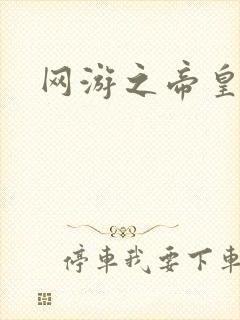 网游之帝皇
停車我要下車